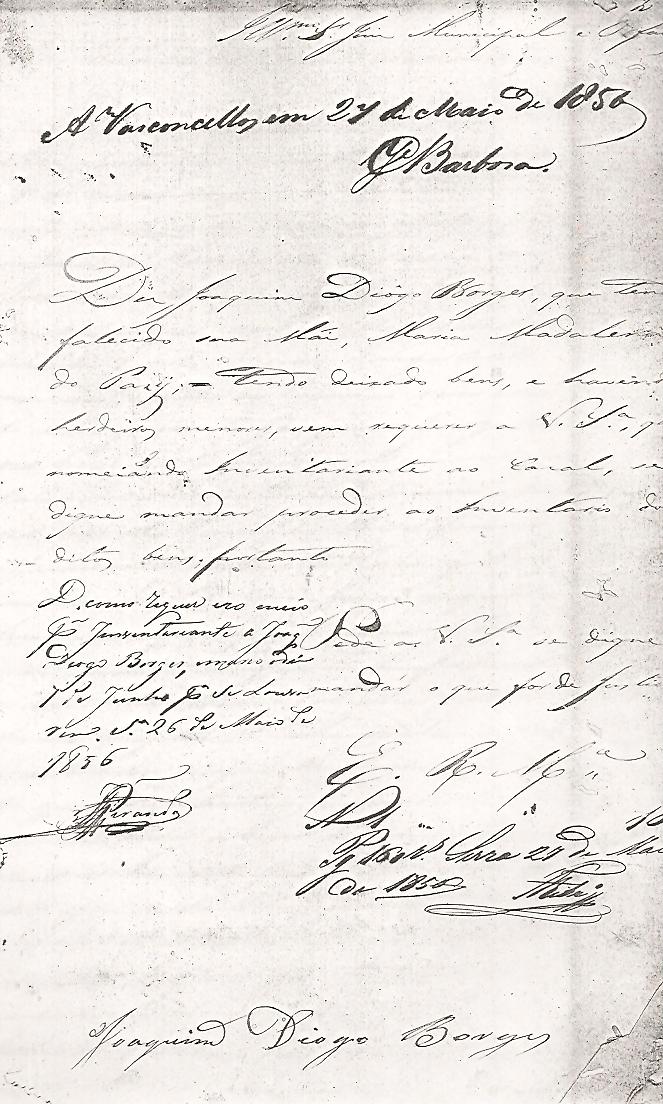 Illmo Sr Juiz Municipal e Orfa
A Vasconcellos em 27 de Maio de 1856
Barbosa.
Diz Joaquim Diôgo Borges, que tem
falecido sua Mãi, Maria Madalena
do Pasÿ; = tendo deixado bens, e havend
herdeiros menores, vem requerer a V. Sa, q
nomeiando Inventariante ao Casal, se
digne mandar proceder ao Inventario do
ditos bens, portanto
D. como requer e no meio
pa Inventariante a Joaq
Diogo Borges,
1 de Junho pa se louva
rem. Sa 26 de Maio de
1856
Miranda
Pede a V. Sa se digne
mandar o que for de Justi
E. R. Mce
No 1 " " 16
Pg 160 rs. Serra 27 de Mai
de 1856
Joaquim Diogo Borges